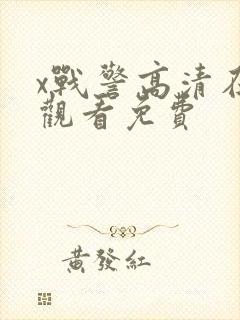 x戰警高清在
觀看免費
黃發紅